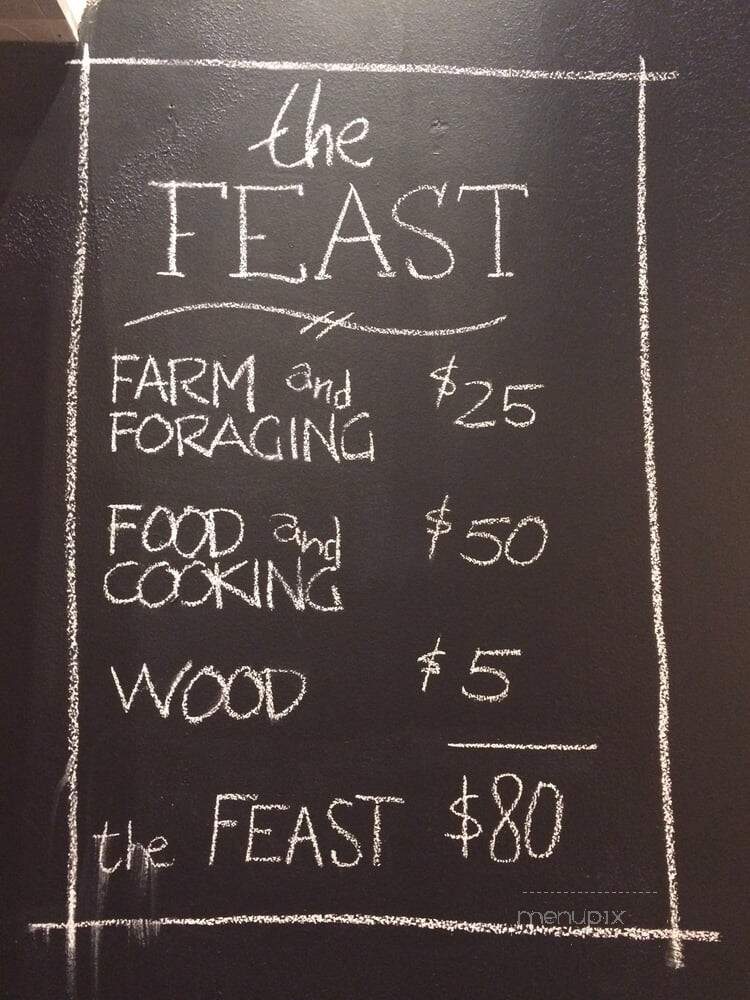 the
FEAST
FARM and $25
FORAGING
FOOD and $50
COOKING
WOOD $5
the FEAST $80
menupix